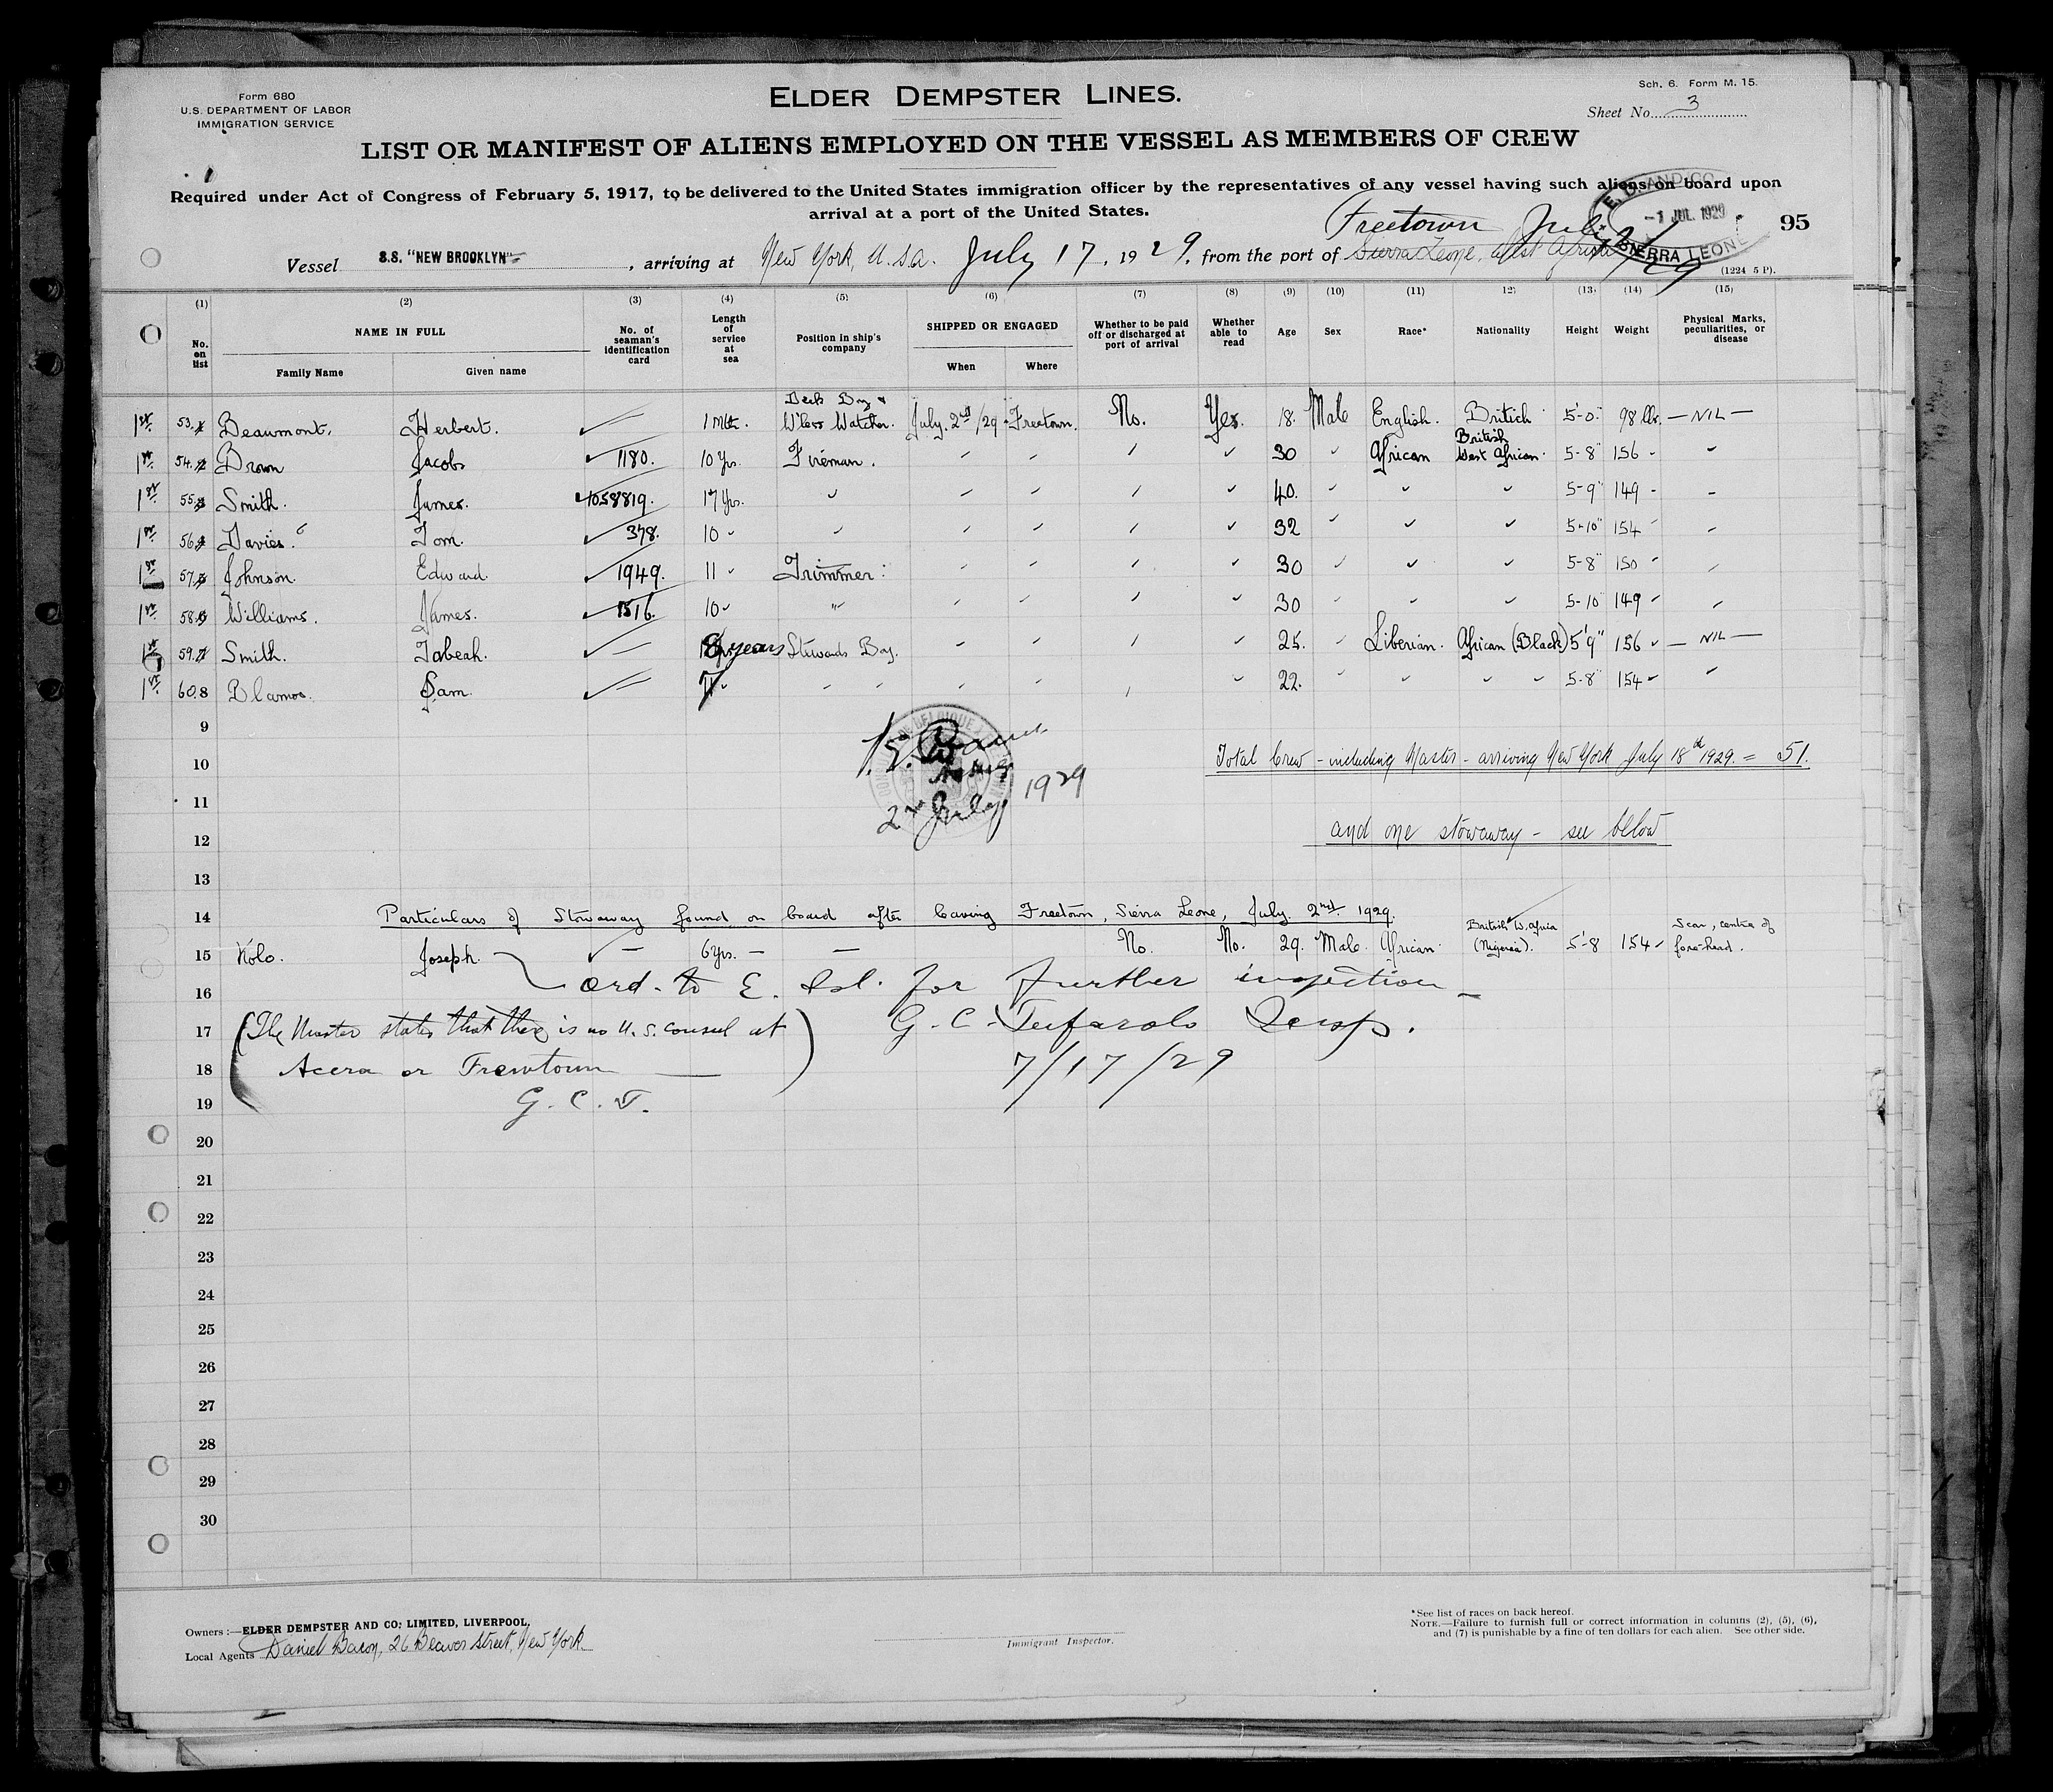 Form 680
U.S. DEPARTMENT OF LABOR
IMMIGRATION SERVICE
ELDER DEMPSTER LINES.
Sch. 6. Form M. 15.
Sheet No. 3
LIST OR MANIFEST OF ALIENS EMPLOYED ON THE VESSEL AS MEMBERS OF CREW
Required under Act of Congress of February 5, 1917, to be delivered to the United States immigration officer by the representatives of any vessel having such aliens on board upon
arrival at a port of the United States.
E. D. AND CO.
-1 JUL. 1929
SIERRA LEONE
95
Freetown July 2/29
Vessel S.S. "NEW BROOKLYN", arriving at New York, U.S.A. July 17, 1929, from the port of Sierra Leone, West Africa
(1224 5 P).
(1) (2) (3) (4) (5) (6) (7) (8) (9) (10) (11) 12) (13) (14) (15)
No. on list
NAME IN FULL
Family Name Given name
No. of seaman's identification card
Length of service at sea
Position in ship's company
SHIPPED OR ENGAGED
When Where
Whether to be paid off or discharged at port of arrival
Whether able to read
Age
Sex
Race*
Nationality
Height
Weight
Physical Marks, peculiarities, or disease
1st 53. Beaumont. Herbert. 1 Mth. Deck Boy & W'less Watcher. July. 2nd/29 Freetown. No. Yes. 18. Male English. British 5'-0" 98 lbs. — NIL —
1st 54. Brown Jacob 1180. 10 Yrs. Fireman. 30 African British West African. 5-8" 156
1st 55. Smith. James. 1058819. 17 Yrs. 40. 5-9" 149
1st 56. Davies. Tom. 378. 10 32 5-10" 154
1st 57. Johnson. Edward. 1949. 11 Trimmer: 30 5-8" 150
1st 58. Williams. James. 1516. 10 " 30 5-10 149
1st 59. Smith. Jabeah. 8 years Stewards Boy. 25. Liberian. African (Black) 5'9" 156 — NIL —
1st 60. 8 Blamoo. Sam. 7 22. 5-8" 154
9
10
Total Crew - including Master - arriving New York July 18th 1929. = 51.
2nd July 1929
11
12
and one stowaway - see below
13
14 Particulars of Stowaway found on board after leaving Freetown, Sierra Leone, July. 2nd. 1929.
15 Kolo. Joseph. — 6 yrs. — — No. No. 29. Male. African British W. Africa (Nigeria). 5'-8 154 Scar, centre of fore-head.
16 Ord. to E. Isl. for further inspection —
17 (The Master states that there is no U.S. consul at
G. C. Tufarolo Insp.
18 Accra or Freetown —)
7/17/29
19 G. C. T.
20
21
22
23
24
25
26
27
28
29
30
Owners:—ELDER DEMPSTER AND CO; LIMITED, LIVERPOOL.
Local Agents Daniel Bacon, 26 Beaver Street, New York
Immigrant Inspector.
*See list of races on back hereof.
NOTE.—Failure to furnish full or correct information in columns (2), (5), (6),
and (7) is punishable by a fine of ten dollars for each alien. See other side.